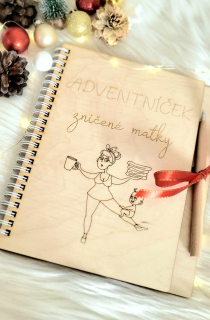 ADVENTNÍČEK
zničené matky